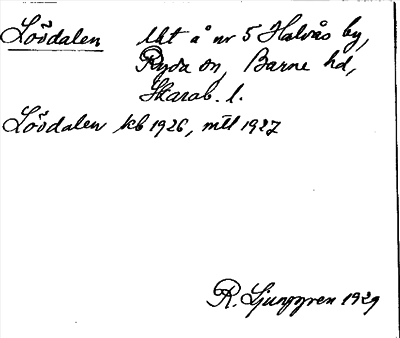 Lövdalen Uht å nr 5 Halvås by,
Ryda sn, Barne hd,
Skarab. l.
Lövdalen kb 1926, mtl 1927
R. Ljunggren 1929